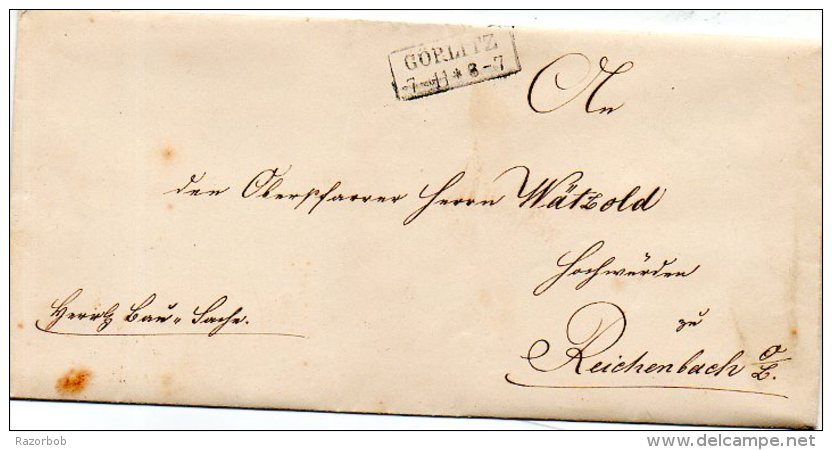 GÖRLITZ
7-11*8-7
An
den Oberpfarrer Herrn Wätzold
Hochwürden
zu
Herrsch Bau-Sache.
Reichenbach O/L.
Razorbob
www.delcampe.net